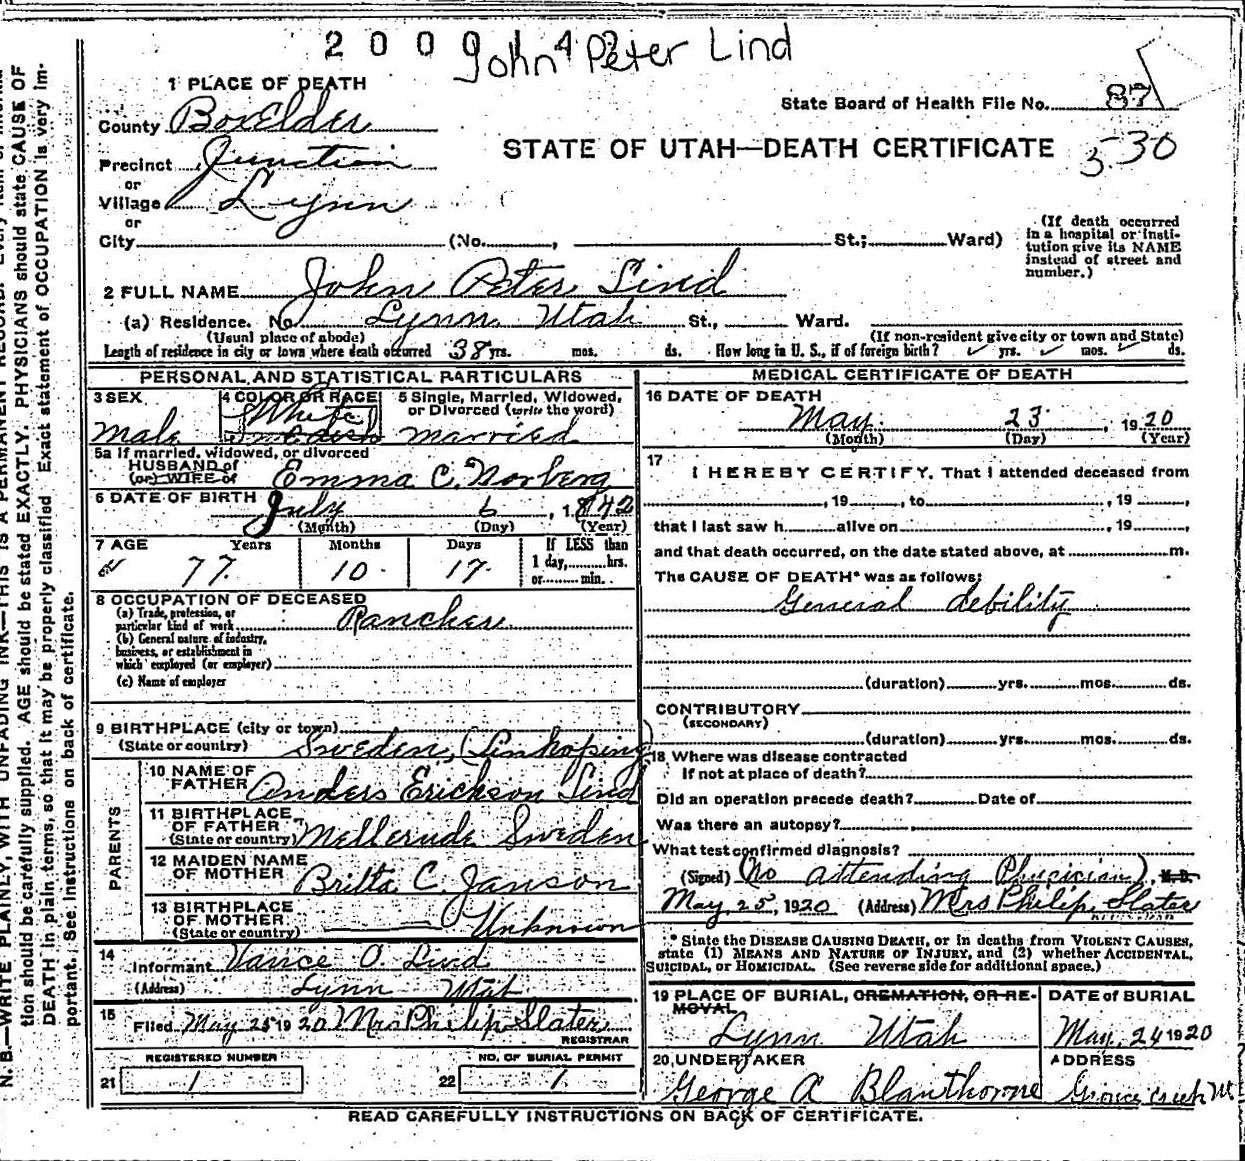 2 0 0 9 1 4
John Peter Lind
1 PLACE OF DEATH
State Board of Health File No. 87
County BoxElder
STATE OF UTAH—DEATH CERTIFICATE 530
Precinct Junction
or
Village Lynn
or
City (No. , St.; Ward)
(If death occurred
in a hospital or insti-
tution give its NAME
instead of street and
number.)
2 FULL NAME John Peter Lind
(a) Residence. No. Lynn Utah St., Ward.
(Usual place of abode) (If non-resident give city or town and State)
Length of residence in city or town where death occurred 38 yrs. mos. ds. How long in U. S., if of foreign birth? yrs. mos. ds.
PERSONAL AND STATISTICAL PARTICULARS
3 SEX 4 COLOR OR RACE 5 Single, Married, Widowed,
or Divorced (write the word)
Male White Swedish married
5a If married, widowed, or divorced
HUSBAND of
(or) WIFE of Emma C. Norberg
6 DATE OF BIRTH July 6, 1842
(Month) (Day) (Year)
7 AGE Years Months Days If LESS than
1 day, hrs.
or min.
77 10 17
8 OCCUPATION OF DECEASED
(a) Trade, profession, or
particular kind of work Rancher
(b) General nature of industry,
business, or establishment in
which employed (or employer)
(c) Name of employer
9 BIRTHPLACE (city or town)
(State or country) Sweden, (Linkoping)
PARENTS
10 NAME OF
FATHER Anders Erickson Lind
11 BIRTHPLACE
OF FATHER
(State or country) Mellerude Sweden
12 MAIDEN NAME
OF MOTHER Britta C. Janson
13 BIRTHPLACE
OF MOTHER
(State or country) Unknown
14
Informant Vance O Lind
(Address) Lynn Utah
15
Filed May 25 1920 Mrs Philip Slater
REGISTRAR
REGISTERED NUMBER NO. OF BURIAL PERMIT
21 1 22 1
MEDICAL CERTIFICATE OF DEATH
16 DATE OF DEATH
May 23, 1920
(Month) (Day) (Year)
17
I HEREBY CERTIFY, That I attended deceased from
, 19 , to , 19 ,
that I last saw h alive on , 19 ,
and that death occurred, on the date stated above, at m.
The CAUSE OF DEATH* was as follows:
General debility
(duration) yrs. mos. ds.
CONTRIBUTORY
(SECONDARY)
(duration) yrs. mos. ds.
18 Where was disease contracted
if not at place of death?
Did an operation precede death? Date of
Was there an autopsy?
What test confirmed diagnosis?
(Signed) (No attending Physician), M.D.
May 25, 1920 (Address) Mrs Philip Slater
REGISTRAR
* State the DISEASE CAUSING DEATH, or in deaths from VIOLENT CAUSES,
state (1) MEANS AND NATURE OF INJURY, and (2) whether ACCIDENTAL,
SUICIDAL, or HOMICIDAL. (See reverse side for additional space.)
19 PLACE OF BURIAL, CREMATION, OR RE-
MOVAL
Lynn Utah
DATE of BURIAL
May 24 1920
20 UNDERTAKER
George A Blanthorne
ADDRESS
READ CAREFULLY INSTRUCTIONS ON BACK OF CERTIFICATE.
N. B.—WRITE PLAINLY, WITH UNFADING INK—THIS IS A PERMANENT RECORD.
tion should be carefully supplied. AGE should be stated EXACTLY. PHYSICIANS should state CAUSE OF
DEATH in plain terms, so that it may be properly classified. Exact statement of OCCUPATION is very im-
portant. See instructions on back of certificate.